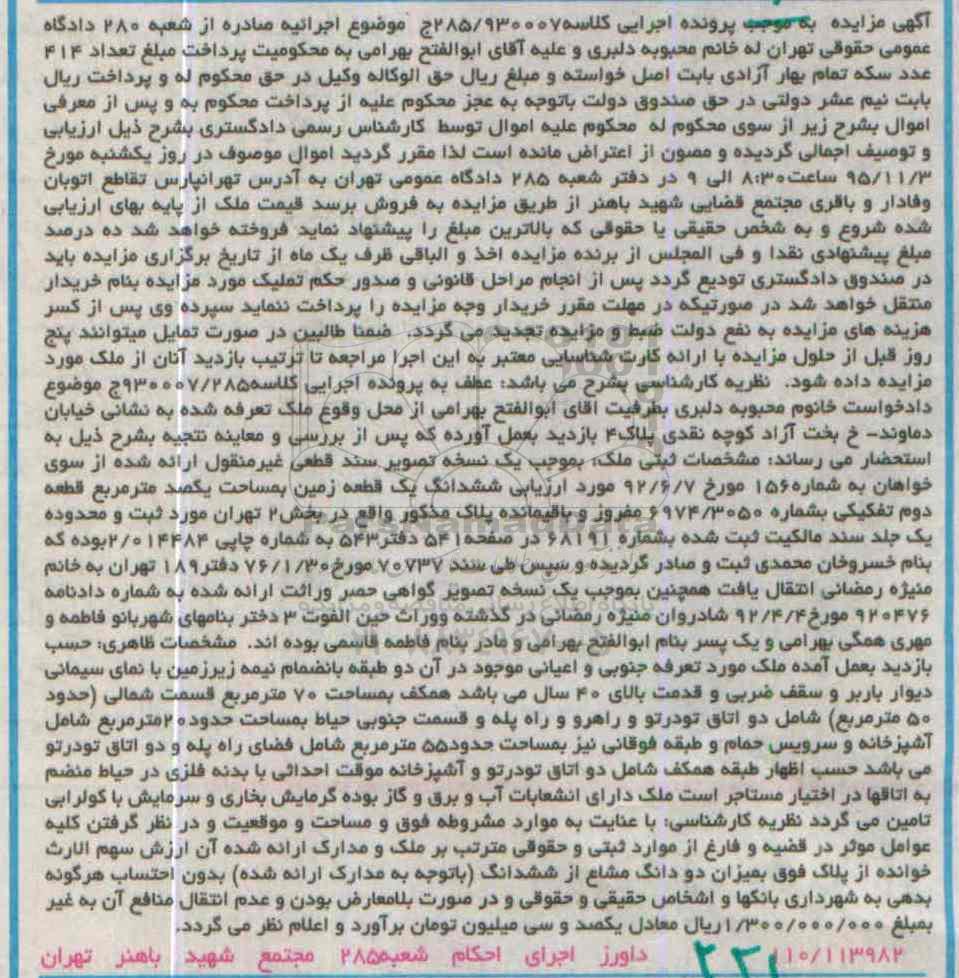 آگهی مزایده به موجب پرونده اجرایی کلاسه۲۸۵/۹۳۰۰۰۷ج موضوع اجرائیه صادره از شعبه ۲۸۰ دادگاه
عمومی حقوقی تهران له خانم محبوبه دلبری و علیه آقای ابوالفتح بهرامی به محکومیت پرداخت مبلغ تعداد ۴۱۴
عدد سکه تمام بهار آزادی بابت اصل خواسته و مبلغ ریال حق الوکاله وکیل در حق محکوم له و پرداخت ریال
بابت نیم عشر دولتی در حق صندوق دولت باتوجه به عجز محکوم علیه از پرداخت محکوم به و پس از معرفی
اموال بشرح زیر از سوی محکوم له محکوم علیه اموال توسط کارشناس رسمی دادگستری بشرح ذیل ارزیابی
و توصیف اجمالی گردیده و مصون از اعتراض مانده است لذا مقرر گردید اموال موصوف در روز یکشنبه مورخ
۹۵/۱۱/۳ ساعت۸:۳۰ الی ۹ در دفتر شعبه ۲۸۵ دادگاه عمومی تهران به آدرس تهرانپارس تقاطع اتوبان
وفادار و باقری مجتمع قضایی شهید باهنر از طریق مزایده به فروش برسد قیمت ملک از پایه بهای ارزیابی
شده شروع و به شخص حقیقی یا حقوقی که بالاترین مبلغ را پیشنهاد نماید فروخته خواهد شد ده درصد
مبلغ پیشنهادی نقدا و فی المجلس از برنده مزایده اخذ و الباقی ظرف یک ماه از تاریخ برگزاری مزایده باید
در صندوق دادگستری تودیع گردد پس از انجام مراحل قانونی و صدور حکم تملیک مورد مزایده بنام خریدار
منتقل خواهد شد در صورتیکه در مهلت مقرر خریدار وجه مزایده را پرداخت ننماید سپرده وی پس از کسر
هزینه های مزایده به نفع دولت ضبط و مزایده تجدید می گردد. ضمنا طالبین در صورت تمایل میتوانند پنج
روز قبل از حلول مزایده با ارائه کارت شناسایی معتبر به این اجرا مراجعه تا ترتیب بازدید آنان از ملک مورد
مزایده داده شود. نظریه کارشناسی بشرح می باشد: عطف به پرونده اجرایی کلاسه۹۳۰۰۰۷/۲۸۵ج موضوع
دادخواست خانوم محبوبه دلبری بطرفیت اقای ابوالفتح بهرامی از محل وقوع ملک تعرفه شده به نشانی خیابان
دماوند- خ بخت آزاد کوچه نقدی پلاک۴ بازدید بعمل آورده که پس از بررسی و معاینه نتجیه بشرح ذیل به
استحضار می رساند: مشخصات ثبتی ملک: بموجب یک نسخه تصویر سند قطعی غیرمنقول ارائه شده از سوی
خواهان به شماره۱۵۶ مورخ ۹۲/۶/۷ مورد ارزیابی ششدانگ یک قطعه زمین بمساحت یکصد مترمربع قطعه
دوم تفکیکی بشماره ۶۹۷۴/۳۰۵۰ مفروز و باقیمانده پلاک مذکور واقع در بخش۲ تهران مورد ثبت و محدوده
یک جلد سند مالکیت ثبت شده بشماره ۶۸۱۹۱ در صفحه۵۴۱ دفتر۵۴۳ به شماره چاپی ۲/۰۱۴۴۸۴بوده که
بنام خسروخان محمدی ثبت و صادر گردیده و سپس طی سند ۷۰۷۳۷ مورخ۷۶/۱/۳۰ دفتر۱۸۹ تهران به خانم
منیژه رمضانی انتقال یافت همچنین بموجب یک نسخه تصویر گواهی حصر وراثت ارائه شده به شماره دادنامه
۹۲۰۴۷۶ مورخ۹۲/۴/۴ شادروان منیژه رمضانی در گذشته وورات حین الفوت ۳ دختر بنامهای شهربانو فاطمه و
مهری همگی بهرامی و یک پسر بنام ابوالفتح بهرامی و مادر بنام فاطمه قاسمی بوده اند. مشخصات ظاهری: حسب
بازدید بعمل آمده ملک مورد تعرفه جنوبی و اعیانی موجود در آن دو طبقه بانضمام نیمه زیرزمین با نمای سیمانی
دیوار باربر و سقف ضربی و قدمت بالای ۴۰ سال می باشد همکف بمساحت ۷۰ مترمربع قسمت شمالی (حدود
۵۰ مترمربع) شامل دو اتاق تودرتو و راهرو و راه پله و قسمت جنوبی حیاط بمساحت حدود۲۰مترمربع شامل
آشپزخانه و سرویس حمام و طبقه فوقانی نیز بمساحت حدود۵۵ مترمربع شامل فضای راه پله و دو اتاق تودرتو
می باشد حسب اظهار طبقه همکف شامل دو اتاق تودرتو و آشپزخانه موقت احداثی با بدنه فلزی در حیاط منضم
به اتاقها در اختیار مستاجر است ملک دارای انشعابات آب و برق و گاز بوده گرمایش بخاری و سرمایش با کولرابی
تامین می گردد نظریه کارشناسی: با عنایت به موارد مشروطه فوق و مساحت و موقعیت و در نظر گرفتن کلیه
عوامل موثر در قضیه و فارغ از موارد ثبتی و حقوقی مترتب بر ملک و مدارک ارائه شده آن ارزش سهم الارث
خوانده از پلاک فوق بمیزان دو دانگ مشاع از ششدانگ (باتوجه به مدارک ارائه شده) بدون احتساب هرگونه
بدهی به شهرداری بانکها و اشخاص حقیقی و حقوقی و در صورت بلامعارض بودن و عدم انتقال منافع آن به غیر
بمبلغ ۱/۳۰۰/۰۰۰/۰۰۰ریال معادل یکصد و سی میلیون تومان برآورد و اعلام نظر می گردد.
۱۱۰/۱۱۳۹۸۲ داورز اجرای احکام شعبه۲۸۵ مجتمع شهید باهنر تهران